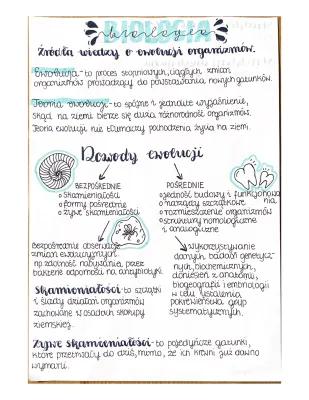 BIOLOGIA
biologia
Źródła wiedzy o ewolucji organizmów.
Ewolucja - to proces stopniowych, ciągłych zmian
organizmów prowadzący do powstawania nowych gatunków.
Teoria ewolucji - to spójne i jednolite wyjaśnienie,
skąd na ziemi bierze się duża różnorodność organizmów.
Teoria ewolucji nie tłumaczy pochodzenia życia na ziemi.
Dowody ewolucji
BEZPOŚREDNIE
o skamieniałości
o formy pośrednie
o żywe skamieniałości
POŚREDNIE
o jedność budowy i funkcjonowa
nia
o narządy szczątkowe
o rozmieszczenie organizmów
o struktury homologiczne
i analogiczne
Bezpośrednie obserwacje
zmian ewolucyjnych
np. zdolność nabywania przez
bakterie odporności na antybiotyki.
wykorzystywanie
danych badań genetycz-
nych, biochemicznych,
doniesień z anatomii,
biogeografii i embriologii
w celu ustalenia
pokrewieństwa grup
systematycznych.
Skamieniałości - to szczątki
i ślady działań organizmów
zachowane w osadach skorupy
ziemskiej.
Żywe skamieniałości - to pojedyncze gatunki,
które przetrwały do dziś, mimo, że ich krewni już dawno
wymarli.